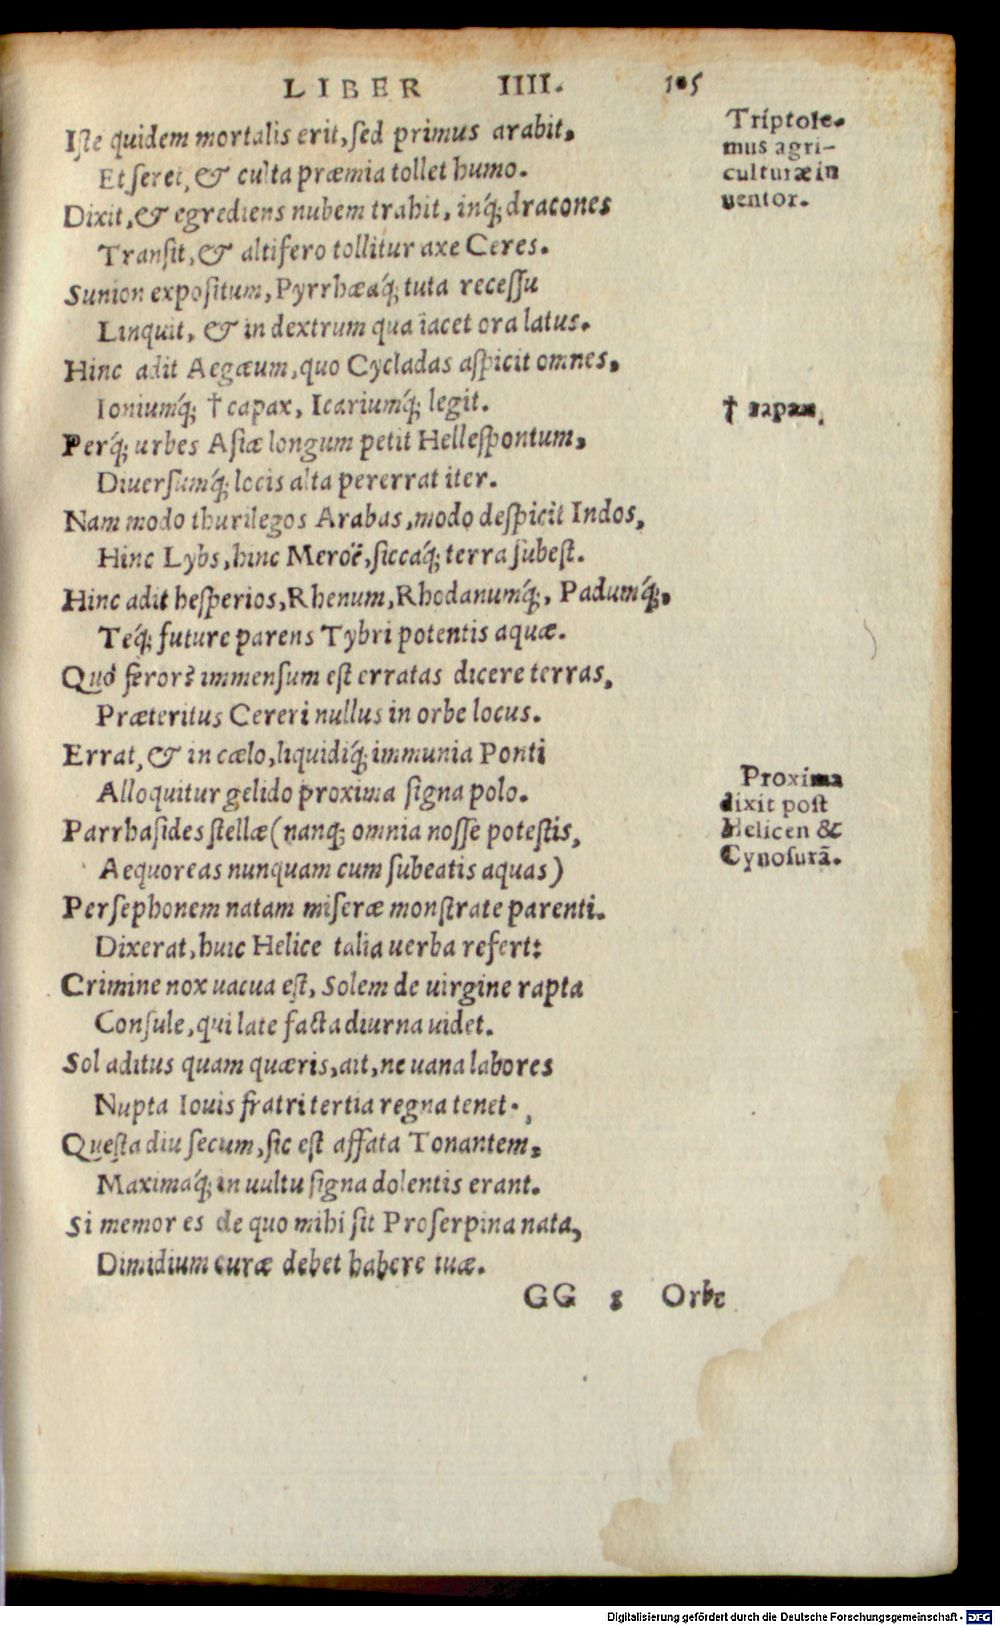 LIBER IIII. 105
Iste quidem mortalis erit, sed primus arabit,
Et seret, & culta præmia tollet humo.
Dixit, & egrediens nubem trahit, inq́; dracones
Transit, & altifero tollitur axe Ceres.
Sunion expositum, Pyrrhæaq́; tuta recessu
Linquit, & in dextrum qua iacet ora latus.
Hinc adit Aegæum, quo Cycladas aspicit omnes,
Ioniumq́; † capax, Icariumq́; legit.
Perq́; urbes Asiæ longum petit Hellespontum,
Diuersumq́; locis alta pererrat iter.
Nam modo thurilegos Arabas, modo despicit Indos,
Hinc Lybs, hinc Meroë, siccaq́; terra subest.
Hinc adit hesperios, Rhenum, Rhodanumq́;, Padumq́;,
Teq́; future parens Tybri potentis aquæ.
Quò feror? immensum est erratas dicere terras,
Præteritus Cereri nullus in orbe locus.
Errat, & in cælo, liquidiq́; immunia Ponti
Alloquitur gelido proxima signa polo.
Parrhasides stellæ (nanq; omnia nosse potestis,
Aequoreas nunquam cum subeatis aquas)
Persephonem natam miseræ monstrate parenti.
Dixerat, huic Helice talia uerba refert:
Crimine nox uacua est, Solem de uirgine rapta
Consule, qui late facta diurna uidet.
Sol aditus quam quæris, ait, ne uana labores
Nupta Iouis fratri tertia regna tenet.,
Questa diu secum, sic est affata Tonantem,
Maximaq́; in uultu signa dolentis erant.
Si memor es de quo mihi sit Proserpina nata,
Dimidium curæ debet habere tuæ.
GG Orbe
Triptole-
mus agri-
culturæ in
uentor.
† rapax,
Proxima
dixit post
Helicen &
Cynosurā.
Digitalisierung gefördert durch die Deutsche Forschungsgemeinschaft - DFG